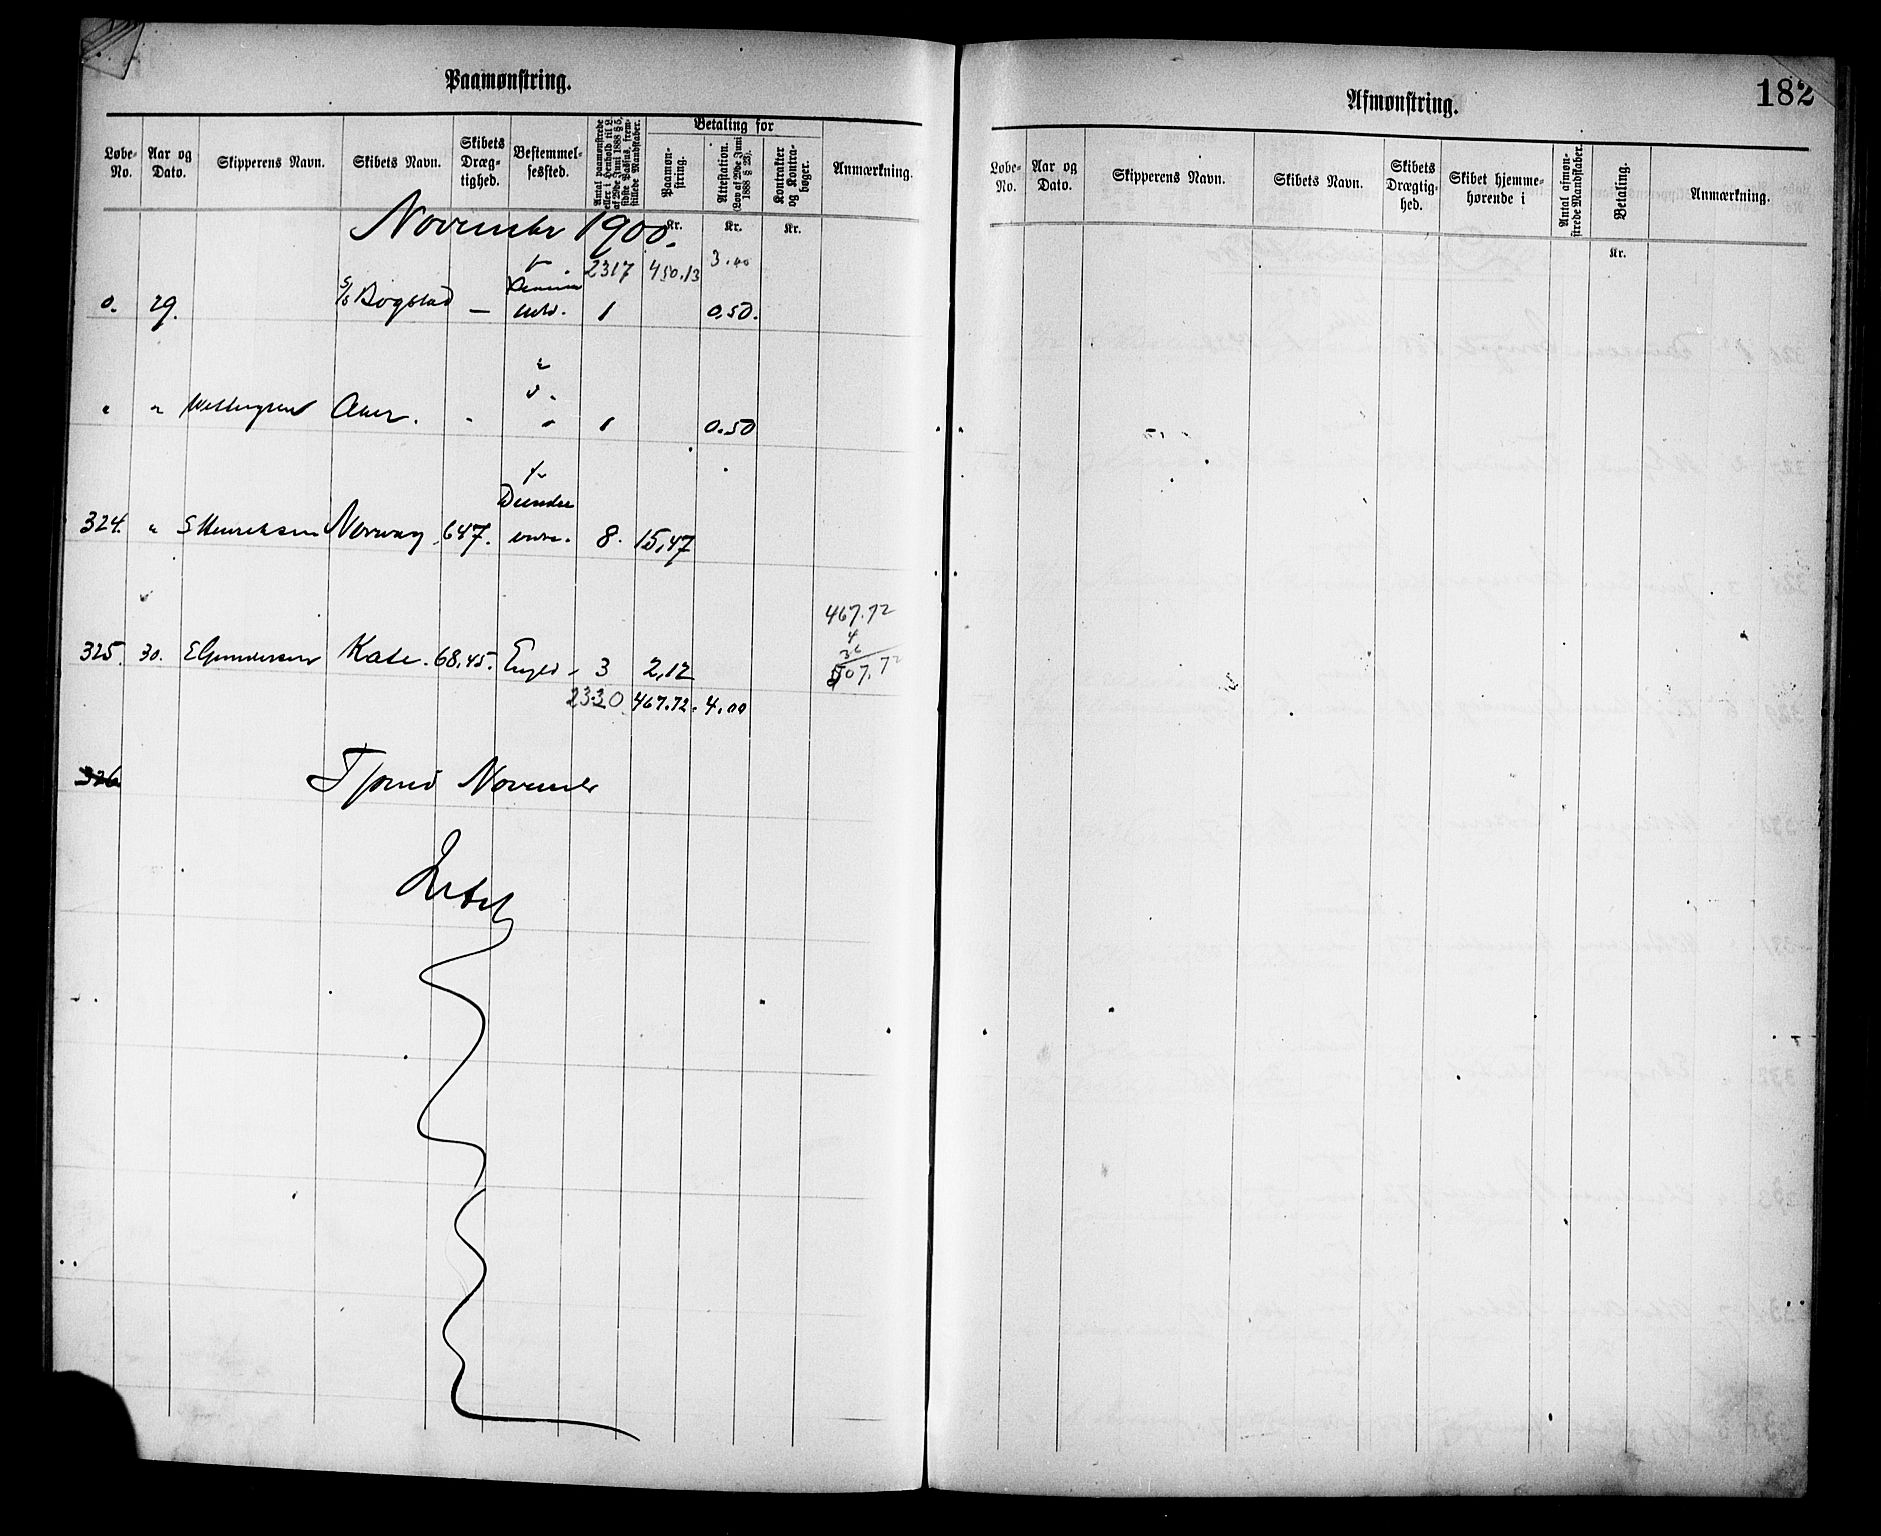 Paamønstring.
Løbe-No.
Aar og Dato.
Skipperens Navn.
Skibets Navn.
Skibets Dræg-tighed.
Bestemmel-sessted.
Antal paamønstrede eller i Henhold til L. af 29de Juni 1888 § 5, sidste Passus, frem-stillede Mandskaber.
Betaling for
Paamøn-string.
Attestation. (Lov af 29de Juni 1888 § 23).
Kontrakter og Kontra-bøger.
Anmærkning.
November 1900.
Kr. Kr. Kr.
2317 450.13 3.00
0. 29. S/S Bogstad — 1 0,50.
" " Aker. - " 1 0.50
Dundee
324. " S Henriksen Norway 647. 8. 15,47
467.72
4
36
325. 30. E Gundersen Kate. 68,45. Engld - 3 2,12 507.72
2330 467.72. 4.00
326
Tjømø November
Afmønstring.
182
Løbe-No.
Aar og Dato.
Skipperens Navn.
Skibets Navn.
Skibets Drægtig-hed.
Skibet hjemme-hørende i
Antal afmøn-strede Mandskaber.
Betaling.
Anmærkning.
Kr.